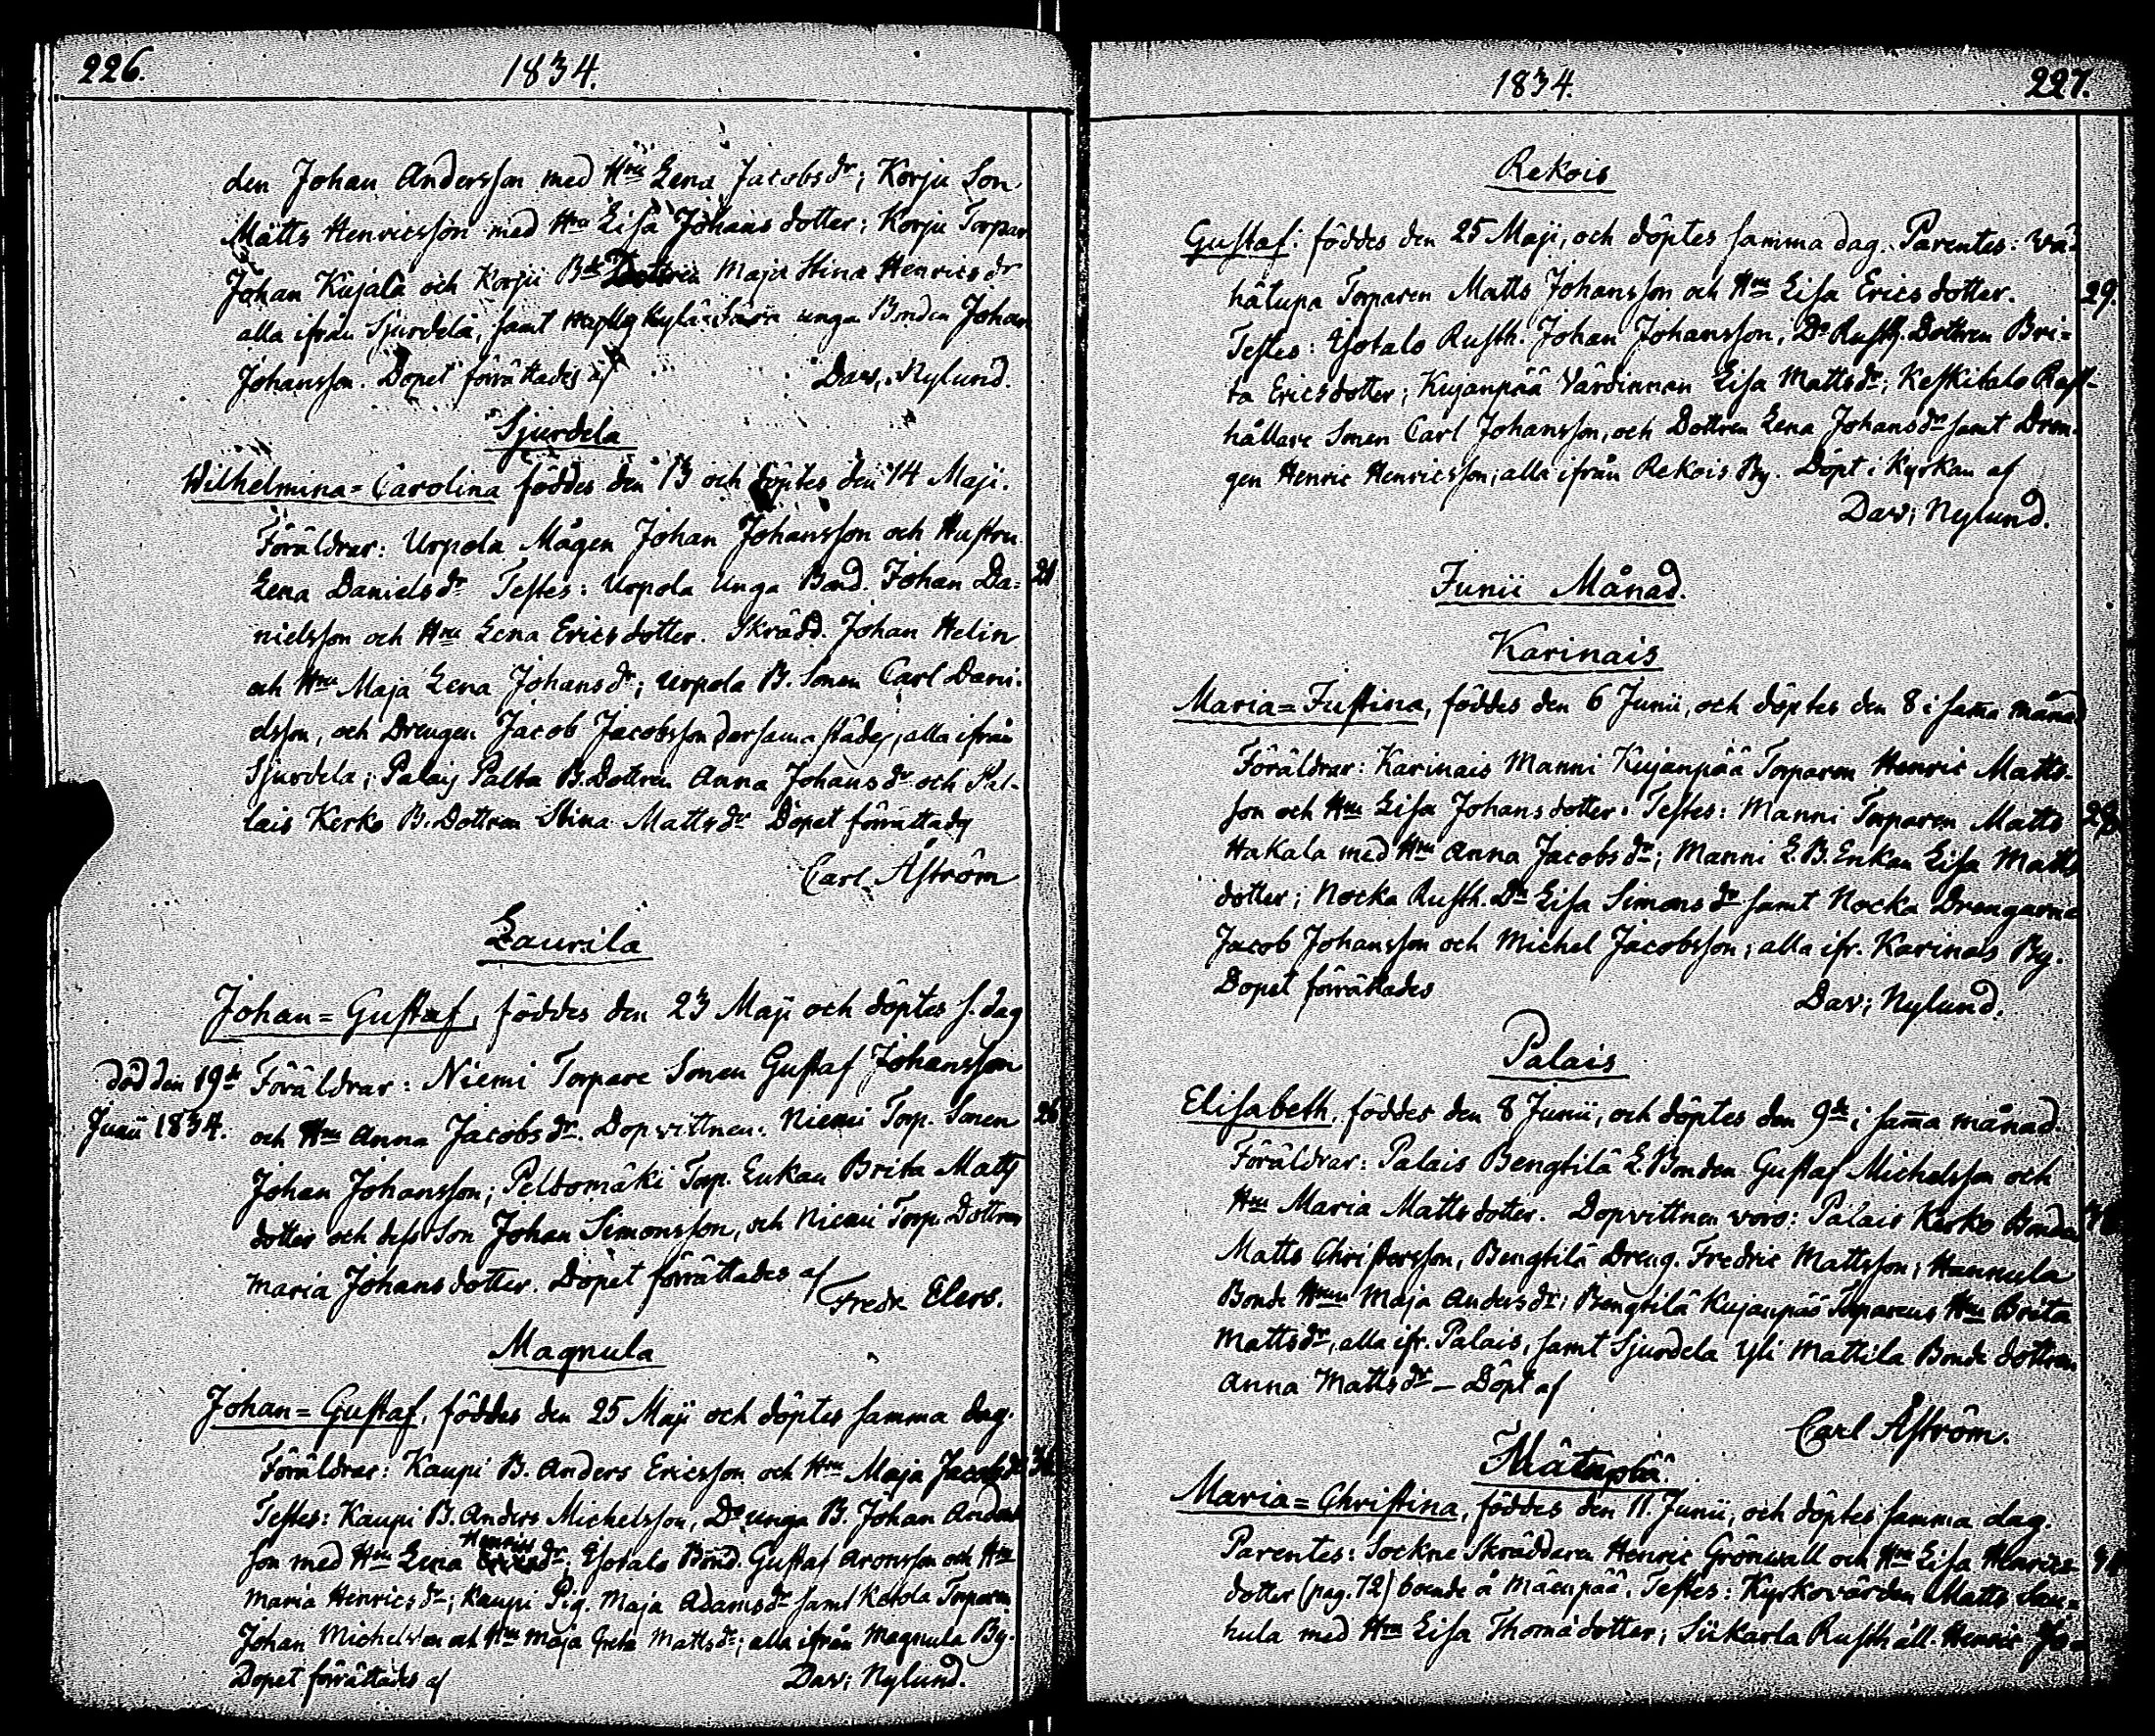 226.
1834.
den Johan Andersson med Hru Lena Jacobsdr; Korju Son
Matts Henricsson med Hru Lisa Johansdotter; Korju Torpar
Johan Kujala och Korju Bde Dottren Maja Stina Henricsdr
alla ifrån Sjurdela, samt Kylä unga Bonden Johan
Johansson. Dopet förrättades af Dav. Nylund.
Sjurdela
Wilhelmina=Carolina föddes den 13 och döptes den 14 Maji.
Föräldrar: Urpola Mågen Johan Johansson och Hustru
Lena Danielsdr Testes: Urpola Unga Bond. Johan Da= 21
nielsson och Hru Lena Ericsdotter. Skrädd. Johan Helin
och Hru Maja Lena Johansdr; Urpola B. Sonen Carl Dani-
elsson, och Drengen Jacob Jacobsson dersamastädes, alla ifrån
Sjurdela; Palais Palta B. Dottren Anna Johansdr och Pal-
lais Kerko B. Dottren Stina Mattsdr Dopet förrättades
Carl Åström
Laurila
Johan=Gustaf, föddes den 23 Maji och döptes s. dag
död den 19de Föräldrar: Niemi Torpare Sonen Gustaf Johansson
Junii 1834. och Hru Anna Jacobsdr. Dopvittnen: Niemi Torp. Sonen 26
Johan Johansson; Peltomäki Torp. Enkan Brita Matts
dotter och dess Son Johan Simonsson, och Niemi Torp. Dottren
Maria Johansdotter. Dopet förrättades af
Fredr. Elers.
Magnula
Johan=Gustaf, föddes den 25 Maji och döptes samma dag.
Föräldrar: Kaupi B. Anders Ericsson och Hru Maja Jacobsdr
Testes: Kaupi B. Anders Michelsson, Do unga B. Johan Anders
Henrics
son med Hru Lena dr; Esotalo Bond. Gustaf Aronsson och Hru
Maria Henricsdr; Kaupi Pig. Maja Adamsdr samt Ketola Torparen
Johan Michelsson och Hru Maja Greta Mattsdr; alla ifrån Magnula By.
Dopet förrättades af Dav: Nylund.
1834.
227.
Rekois
Gustaf: föddes den 25 Maji, och döptes samma dag. Parentes: Vä=
hätupa Torparen Matts Johansson och Hru Lisa Ericsdotter. 29
Testes: Esotalo Rusth. Johan Johansson, Do Rusth. Dottren Bri=
ta Ericsdotter; Kujanpää Värdinnan Lisa Mattsdr; Keskitalo Rust-
hållare Sonen Carl Johansson, och Dottren Lena Johansdr samt Dren-
gen Henric Henricsson; alla ifrån Rekois By. Döpt i Kyrkan af
Dav; Nylund.
Junii Månad.
Karinais
Maria=Justina, föddes den 6 Junii, och döptes den 8 i sama månad
Föräldrar: Karinais Manni Kujanpää Torparen Henric Matts-
son och Hru Lisa Johansdotter. Testes: Manni Torparen Matts 28
Hakala med Hru Anna Jacobsdr; Manni L. B. Enkan Lisa Matts
dotter; Nocka Rusth. Dr Lisa Simonsdr samt Nocka Drengarne
Jacob Johansson och Michel Jacobsson; alla ifr. Karinais By.
Dopet förrättades Dav; Nylund.
Palais
Elisabeth. föddes den 8 Junii, och döptes den 9de i sama månad.
Föräldrar: Palais Bengtilä L. Bonden Gustaf Michelsson och
Hru Maria Mattsdotter. Dopvittnen voro: Palais Kerko Bonden
Matts Christersson, Bengtilä Dreng. Fredric Mattsson; Hannula
Bonde Hrun Maja Andersdr; Bengtilä Kujanpää Torparens Hru Brita
Mattsdr, alla ifr. Palais, samt Sjurdela Yli Mattila Bonde dottren
Anna Mattsdr – Döpt af
Carl Åström.
Maria=Christina, föddes den 11. Junii, och döptes samma dag.
Parentes: Sockne Skräddaren Henric Grönwall och Hru Lisa Henrics-
dotter (pag. 72) boende å Mäenpää. Testes: Kyrkovärden Matts Sau=
hula med Hru Lisa Thomædotter; Siikarla Rusthåll. Henric Jo=